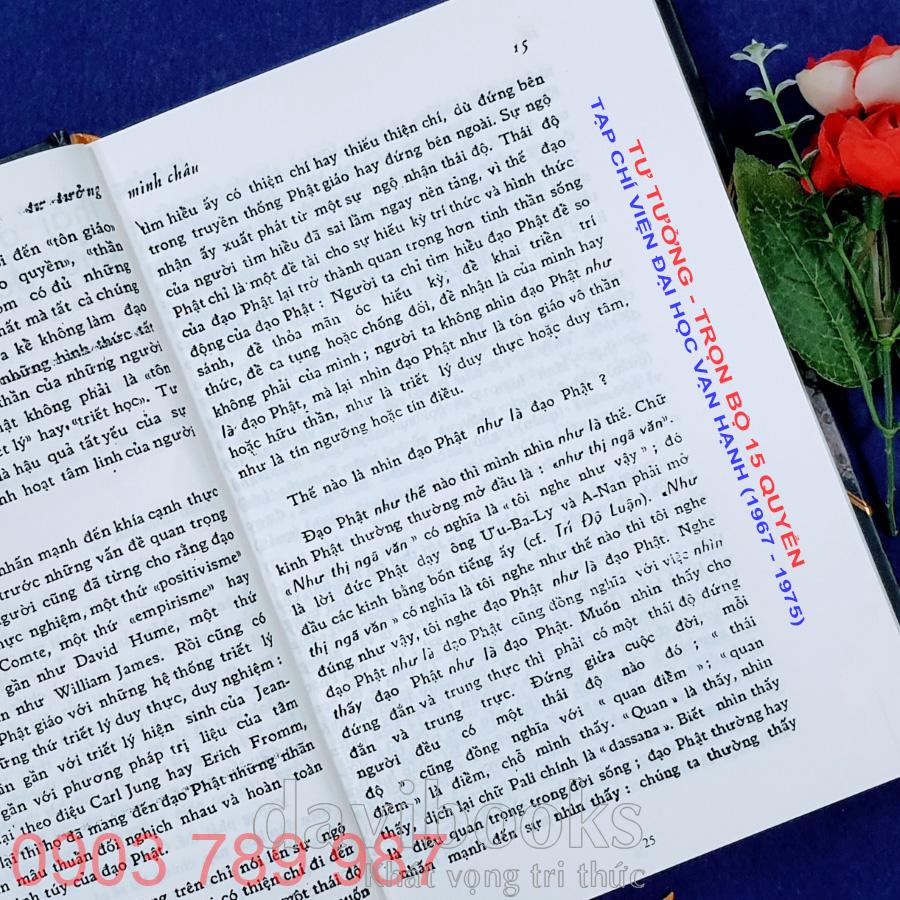 tư tưởng
i đến «tôn giáo
o quyền», «thần
om có đủ những
hất mà tất cả chúng
a kể không làm đạo
những hình thức tất
thần của những người
ật không phải là «tôn
t lý» hay «triết học». Tư
là hậu quả tất yếu của sự
nh hoạt tâm linh của người
nhấn mạnh đến khía cạnh thực
trước những vấn đề quan trọng
gười cũng đã từng cho rằng đạo
hực nghiệm, một thứ «positivisme»
Comte, một thứ «empirisme» hay
gần như David Hume, một thứ
n như William James. Rồi cũng có
Phật giáo với những hệ thống triết lý
ững thứ triết lý duy thực, duy nghiệm :
n gần với triết lý hiện sinh của Jean-
gần với phương pháp trị liệu của tâm
lại theo điệu Carl Jung hay Erich Fromm,
lại thì họ đã mang đến đạo Phật những nhãn
n mâu thuẫn đối nghịch nhau và hoàn toàn
h túy của đạo Phật.
trên chỉ nói lên sự ngộ
i có thiện chí đi đến
một thái độ
15
minh châu
tìm hiểu ấy có thiện chí hay thiếu thiện chí, dù đứng bên
trong truyền thống Phật giáo hay đứng bên ngoài. Sự ngộ
nhận ấy xuất phát từ một sự ngộ nhận thái độ. Thái độ
của người tìm hiểu đã sai lầm ngay nền tảng, vì thế đạo
Phật chỉ là một đề tài cho sự hiếu kỳ tri thức và hình thức
của đạo Phật lại trở thành quan trọng hơn tinh thần sống
động của đạo Phật : Người ta chỉ tìm hiểu đạo Phật để so
sánh, để thỏa mãn óc hiếu kỳ, để khai triển trí
thức, để ca tụng hoặc chống đối, để nhận là của mình hay
không phải của mình ; người ta không nhìn đạo Phật như
là đạo Phật, mà lại nhìn đạo Phật như là tôn giáo vô thần
hoặc hữu thần, như là triết lý duy thực hoặc duy tâm,
như là tín ngưỡng hoặc tín điều.
Thế nào là nhìn đạo Phật như là đạo Phật ?
Đạo Phật như thế nào thì mình nhìn như là thế. Chữ
kinh Phật thường thường mở đầu là : «như thị ngã văn».
«Như thị ngã văn » có nghĩa là « tôi nghe như vậy » ; đó
là lời đức Phật dạy ông Ưu-Ba-Ly và A-Nan phải mở
đầu các kinh bằng bốn tiếng ấy (cf. Trí Độ Luận). «Như
thị ngã văn » có nghĩa là tôi nghe như thế nào thì tôi nghe
đúng như vậy, tôi nghe đạo Phật như là đạo Phật. Nghe
đạo Phật như là đạo Phật cũng đồng nghĩa với việc nhìn
thấy đạo Phật như là đạo Phật. Muốn nhìn thấy cho
đứng đắn và trung thực thì phải có một thái độ đứng
đắn và trung trực. Đứng giữa cuộc đời, mỗi
người đều có một thái độ nào đó ; « thái
độ » cũng đồng nghĩa với « quan điểm » ; « quan
điểm » là điểm, chỗ mình thấy. «Quan » là thấy, nhìn
thấy, dịch lại chữ Pali chính là « dassana». Biết nhìn thấy
là điều quan trọng trong đời sống ; đạo Phật thường hay
nhấn mạnh đến sự nhìn thấy : chúng ta thường thấy
25
TƯ TƯỞNG - TRỌN BỘ 15 QUYỂN
TẠP CHÍ VIỆN ĐẠI HỌC VẠN HẠNH (1967 - 1975)
davibooks
Khát vọng tri thức
0903 789 987